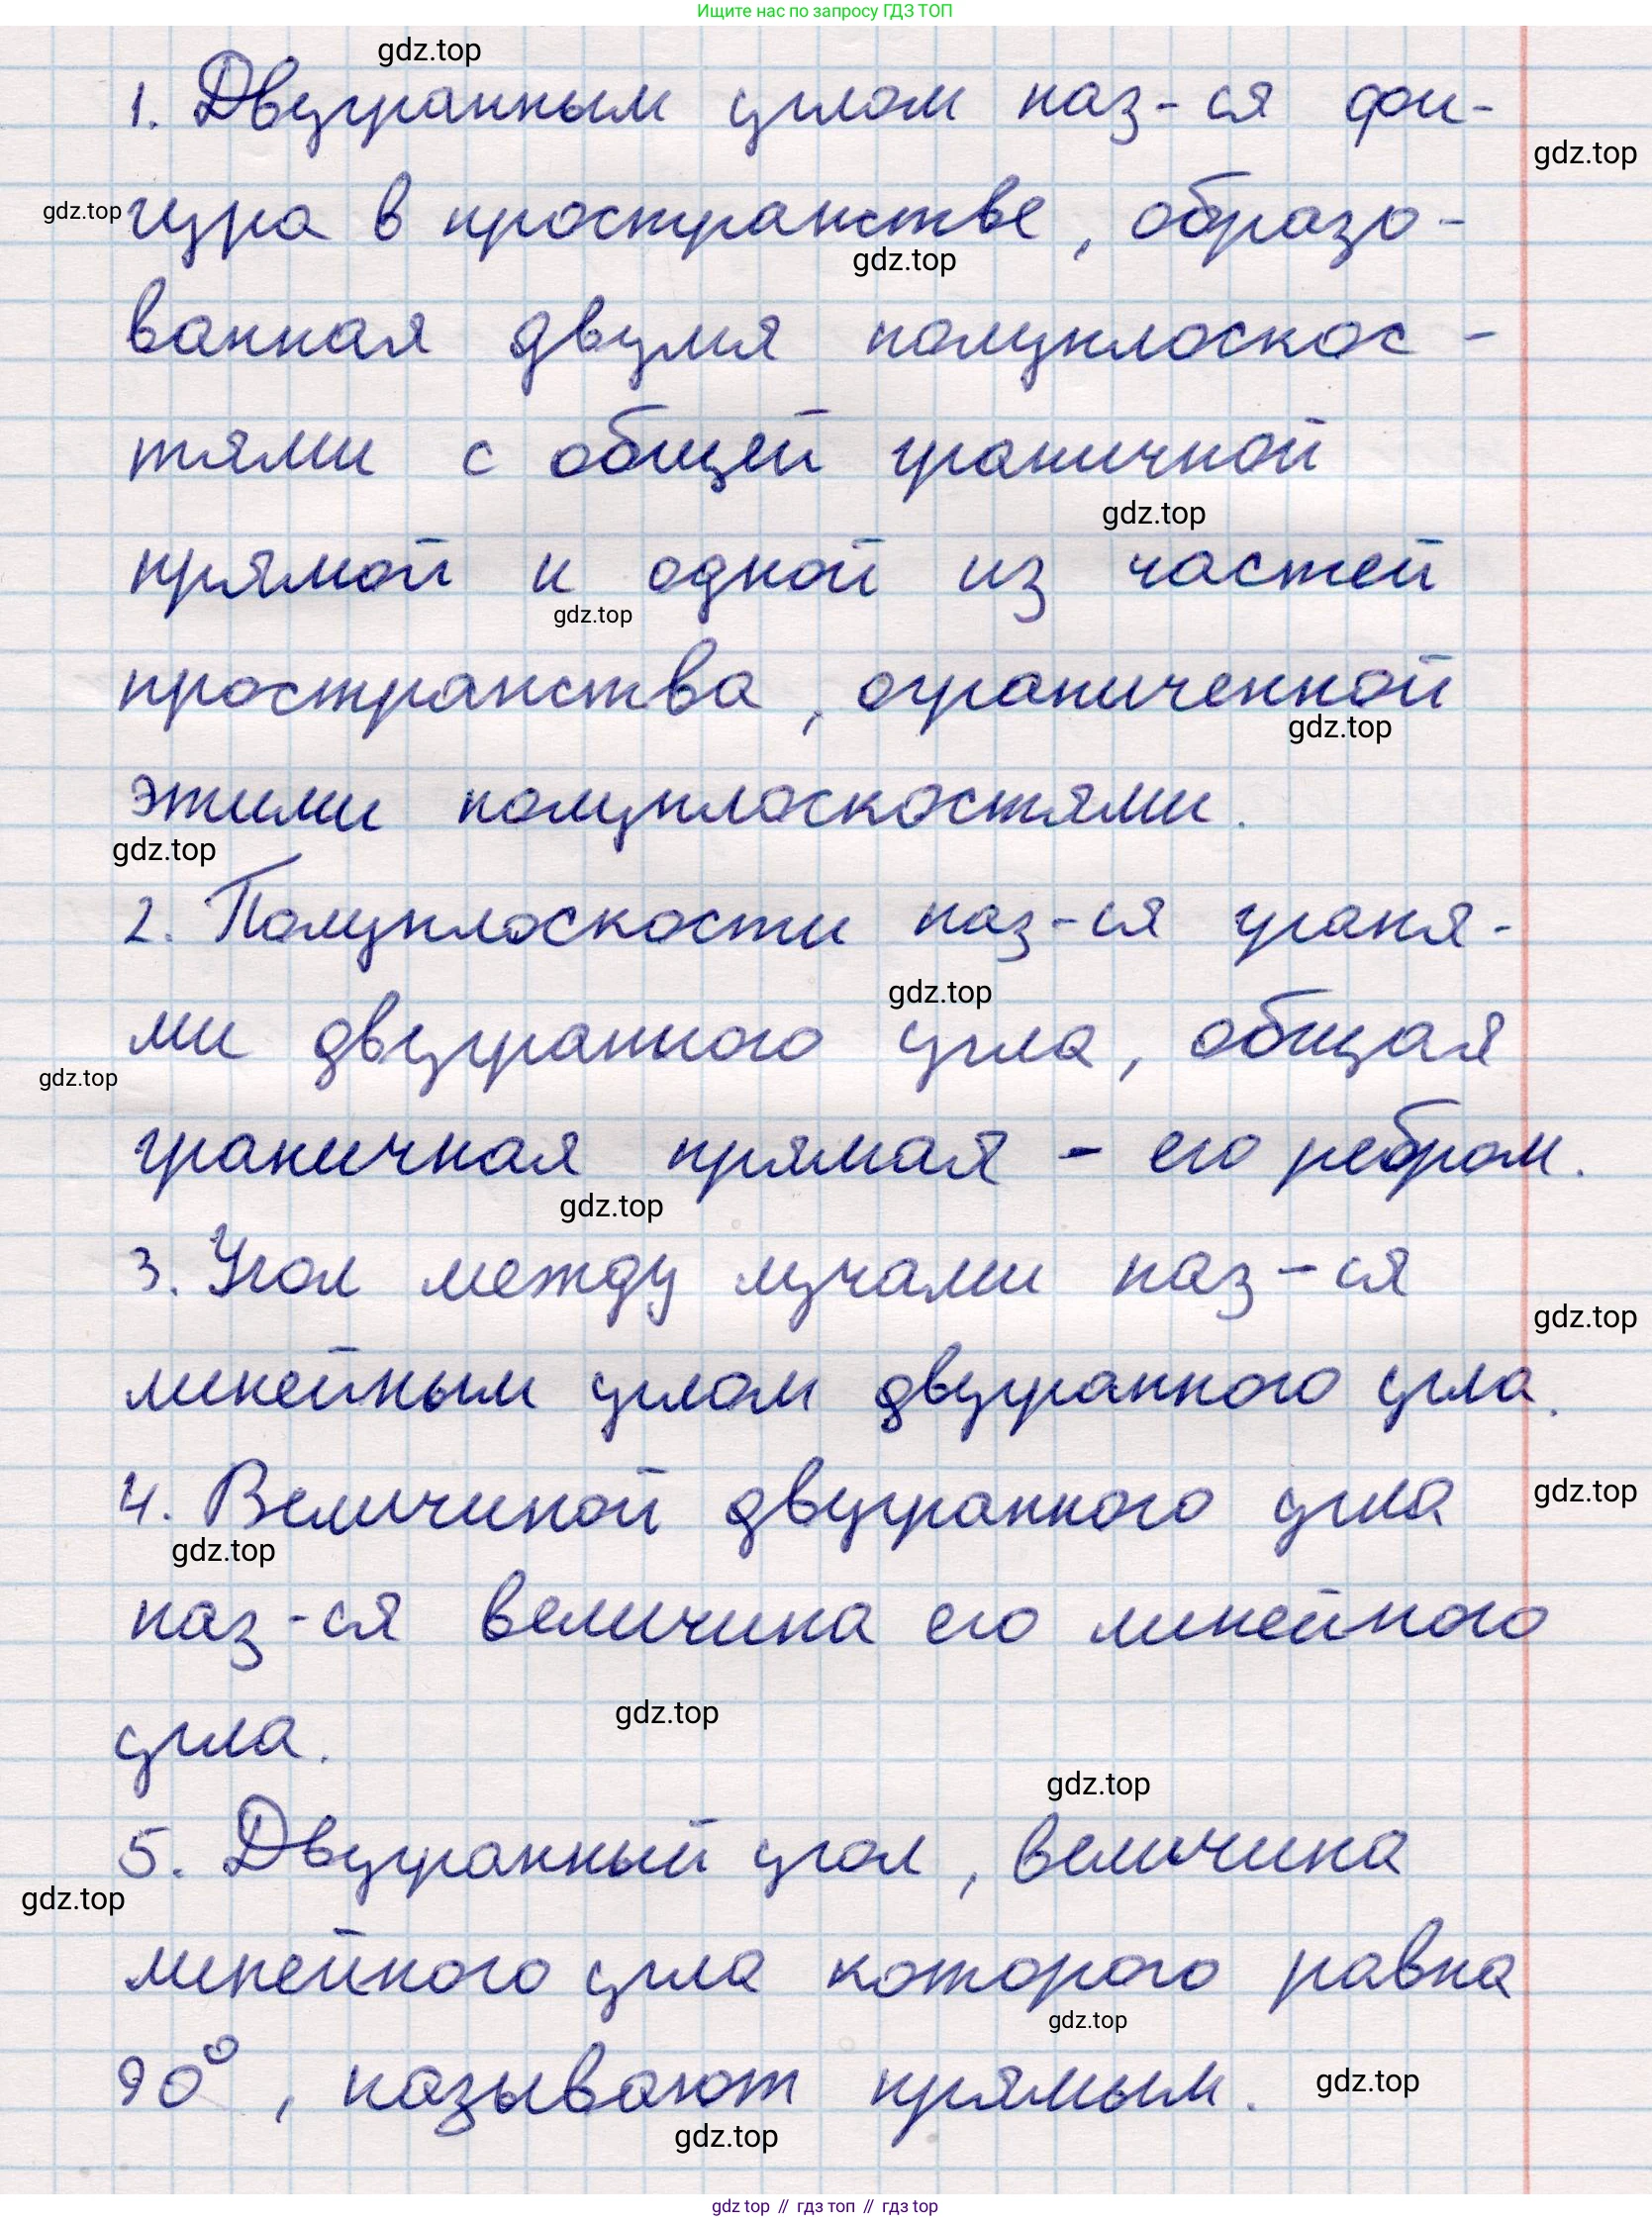 Ищите нас по запросу ГДЗ ТОП
gdz.top
1. Двугранным углом наз-ся фи-
gdz.top
gdz.top
гура в пространстве, образо-
gdz.top
ванная двумя полуплоскос-
тями с общей граничной
gdz.top
прямой и одной из частей
gdz.top
пространства, ограниченной
gdz.top
этими полуплоскостями.
gdz.top
2. Полуплоскости наз-ся граня-
gdz.top
ми двугранного угла, общая
gdz.top
граничная прямая - его ребром.
gdz.top
3. Угол между лучами наз-ся
gdz.top
линейным углом двугранного угла.
4. Величиной двугранного угла
gdz.top
gdz.top
наз-ся величина его линейного
gdz.top
угла.
gdz.top
5. Двугранный угол, величина
gdz.top
линейного угла которого равна
gdz.top
90°, называют прямым.
gdz.top
gdz.top
gdz top // гдз топ // гдз top